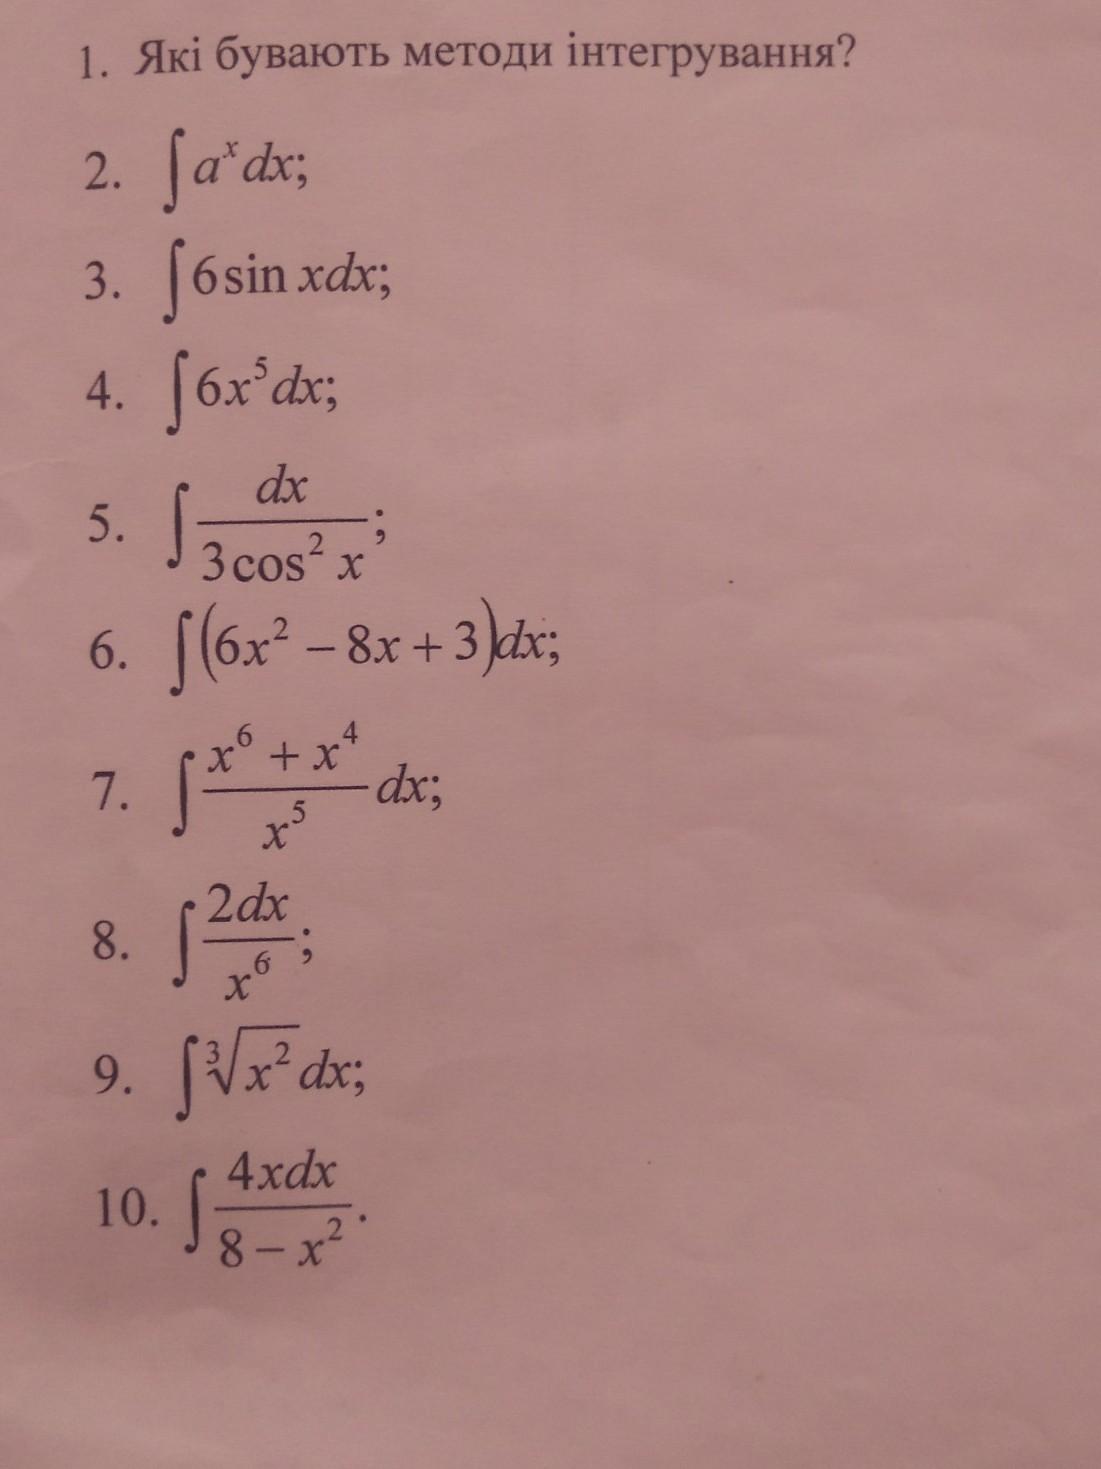 1. Які бувають методи інтегрування?
2. ∫aˣdx;
3. ∫6sin xdx;
4. ∫6x⁵dx;
5. ∫dx/(3cos² x);
6. ∫(6x² – 8x + 3)dx;
7. ∫(x⁶ + x⁴)/x⁵ dx;
8. ∫2dx/x⁶;
9. ∫∛x² dx;
10. ∫4xdx/(8 – x²).